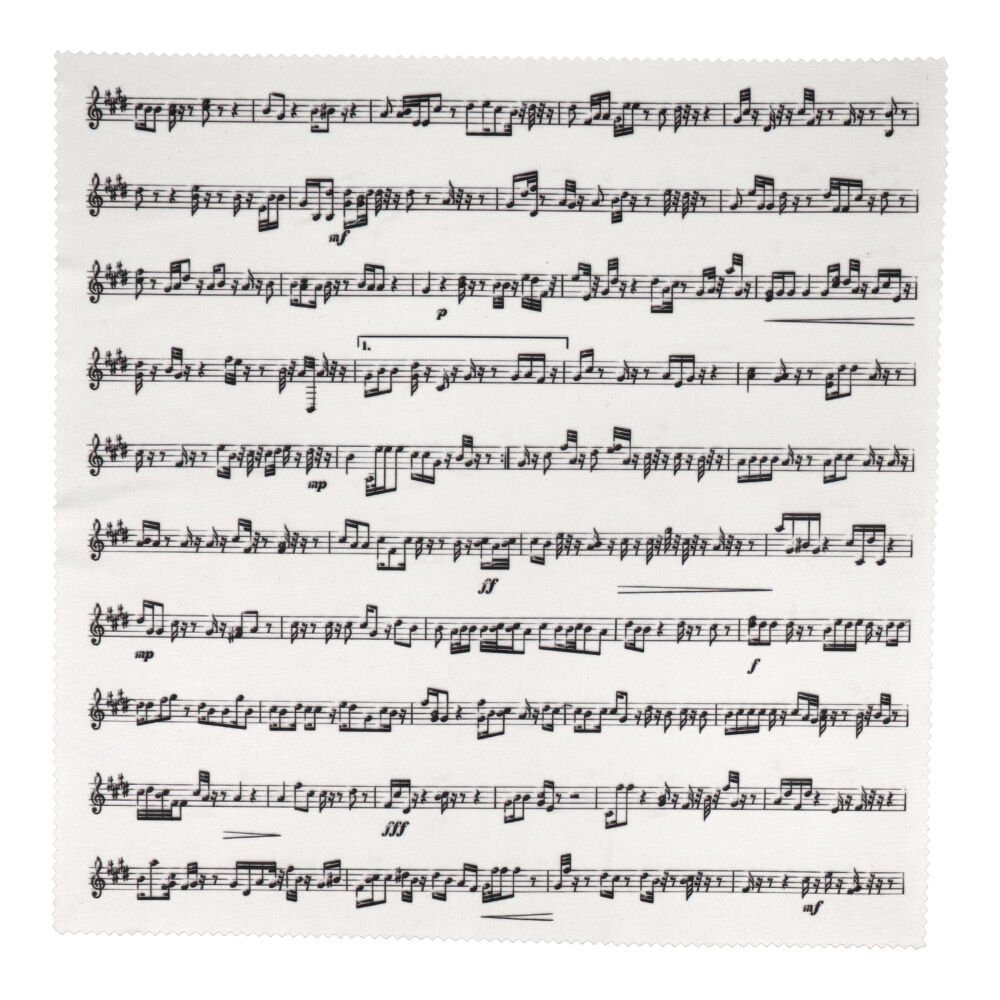 mf
p
1.
mp
ff
mp
f
fff
mf